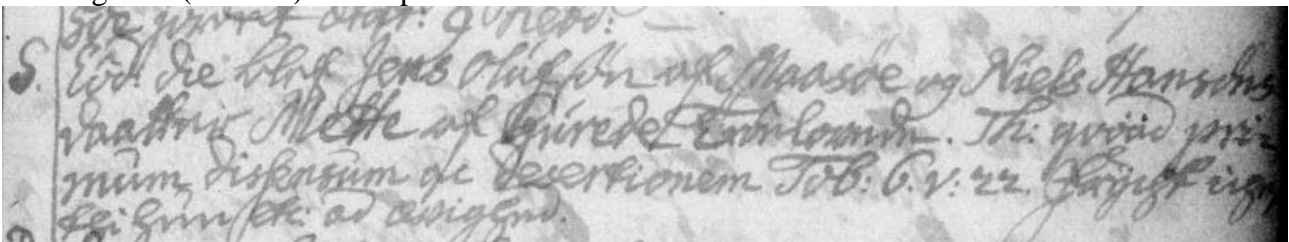 S. Eod. die blef Jens Olufsøn af Maasøe og Niels Hansøns
daatter Mette af Gurede Trolovede. Th: qvoad pri-
mum dissensum ac desertionem Tob: 6. v: 22. Frÿgt icke
thi hun etc: ad ævighed.